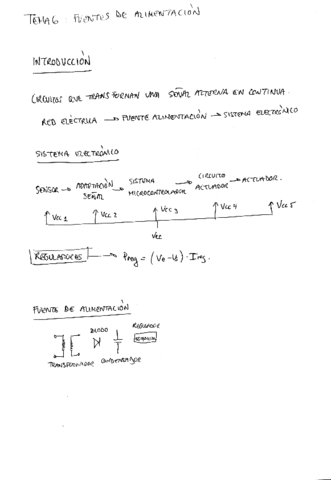 TEMA 6: FUENTES DE ALIMENTACIÓN
INTRODUCCIÓN
CIRCUITOS QUE TRANSFORMAN UNA SEÑAL ALTERNA EN CONTINUA.
RED ELÉCTRICA → FUENTE ALIMENTACIÓN → SISTEMA ELECTRÓNICO
SISTEMA ELECTRÓNICO
SENSOR → ADAPTACIÓN SEÑAL → SISTEMA MICROCONTROLADOR → CIRCUITO ACTUADOR → ACTUADOR.
Vcc1 Vcc2 Vcc3 Vcc4 Vcc5
Vcc
REGULADORES → Preg = (Ve - Vs) · Ireg.
FUENTE DE ALIMENTACIÓN
DIODO REGULADOR
TRANSFORMADOR CONDENSADOR